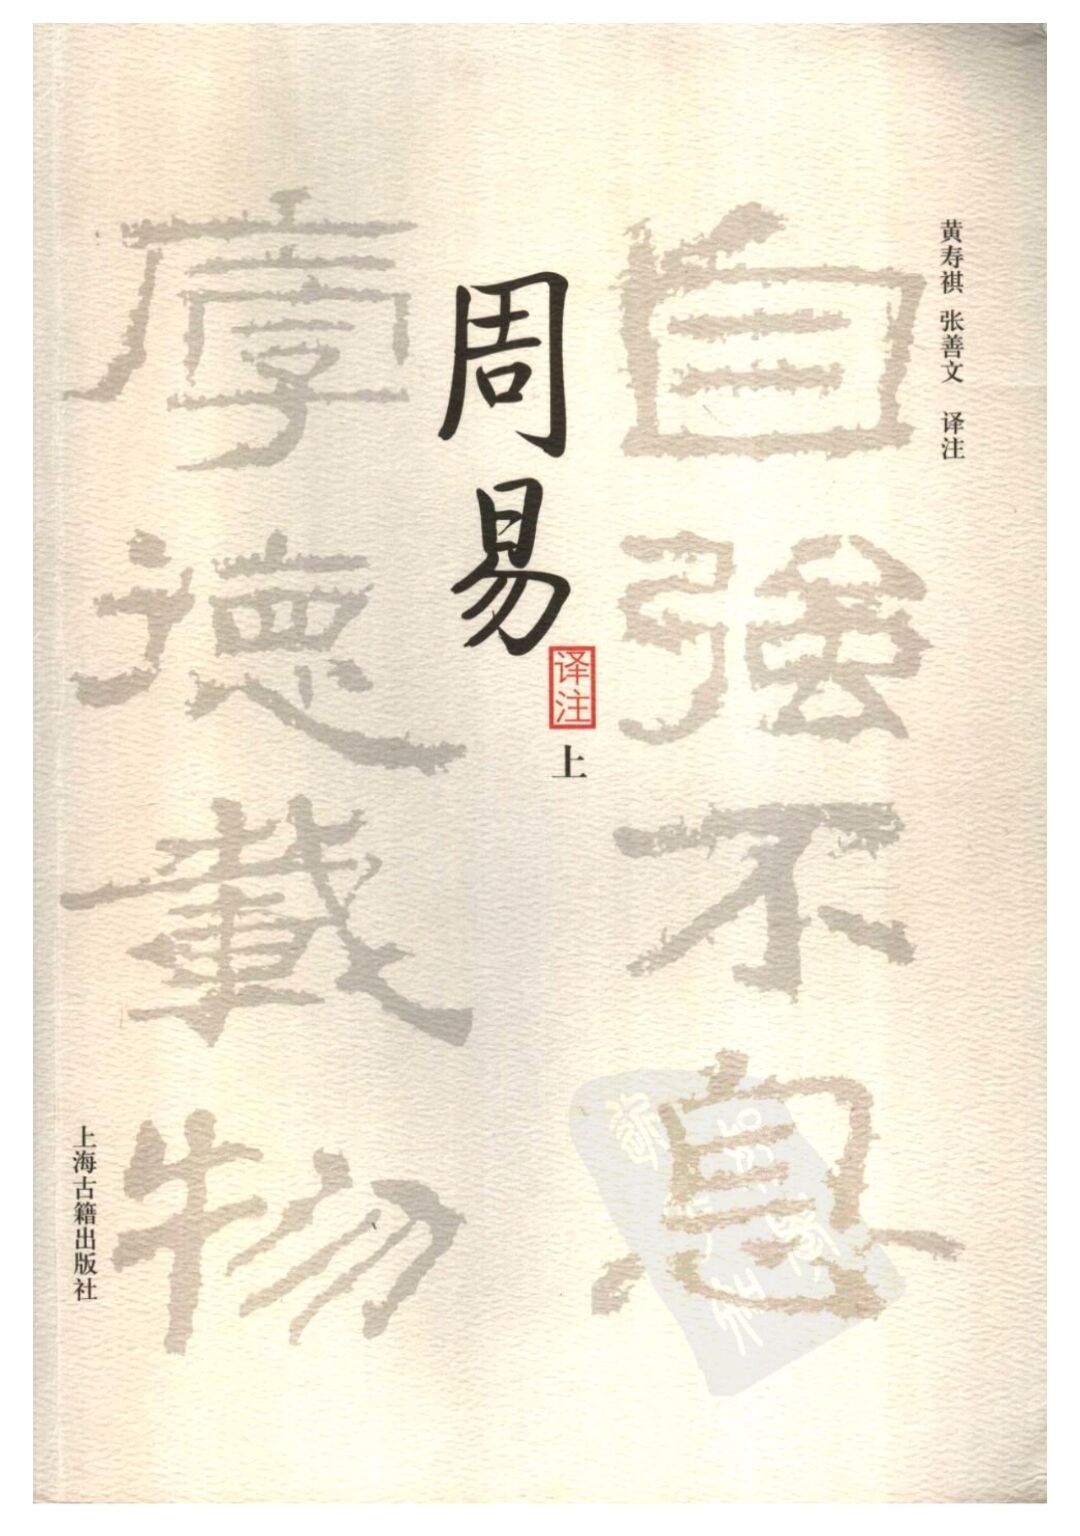 黄寿祺 张善文 译注
自强不息
周易
译注
上
厚德載物
上海古籍出版社